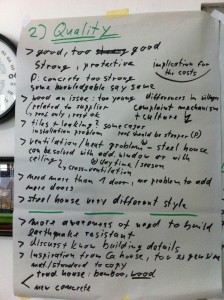 2) Quality
> good, too good
strong, protective
implication for
the costs
D: concrete too strong
some knowledgable say same
> wood an issue: too young
/related to supplier
differences in villages
complaint mechanism
+ culture
> tiles leaking? some cases
installation problem
roof should be steeper (D)
> ventilation/heat problem - steel house
can be solved with add window or with
ceiling?
daytime/season
> cross-ventilation
> need more than 1 door, no problem to add
more doors
> steel house very different style
> more awareness of need to build
earthquake resistant
> discuss + know building details
> inspiration from Ca house, too expensive
to copy
trad house: bamboo, wood
new concrete